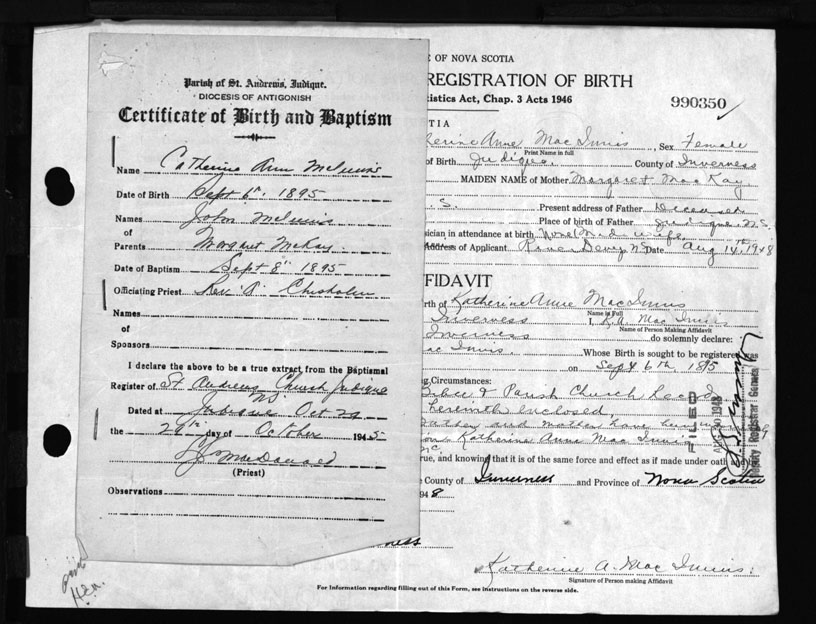 Parish of St. Andrews, Judique.
DIOCESIS OF ANTIGONISH
Certificate of Birth and Baptism
Name Catherine Ann McInnis
Date of Birth Sept 6th. 1895
Names John McInnis
of
Parents Margaret McKay
Date of Baptism Sept 8th 1895
Officiating Priest Rev. A. Chisholm
Names
of
Sponsors
I declare the above to be a true extract from the Baptismal
Register of St Andrews Church Judique
Dated at Judique NS Oct 29
the 29th day of October 1945
MacDonald
(Priest)
Observations
E OF NOVA SCOTIA
REGISTRATION OF BIRTH
tistics Act, Chap. 3 Acts 1946
990350
TIA
herine Anne Mac Innis, Sex Female
Print Name in full
of Birth Judique. County of Inverness
MAIDEN NAME of Mother Margaret MacKay
.S. Present address of Father Deceased
Place of birth of Father Judique N.S.
sician in attendance at birth None Midwife
Address of Applicant River Denys N.S. Date Aug 14th 1948
FFIDAVIT
rth of Katherine Anne MacInnis
Name in Full
Inverness I, K.A. Mac Innis
Name of Person Making Affidavit
Inverness do solemnly declare:
ac Innis. Whose Birth is sought to be registered was
on Sept 6th 1895
ng, Circumstances:
Bible & Parish Church Record
herewith Inclosed,
Father and mother have
Katherine Anne Mac Innis
rue, and knowing that it is of the same force and effect as if made under oath and
e County of Inverness and Province of Nova Scotia
948
ness
FILED
AUG 1948
Deputy Registrar General
Katherine A. Mac Innis.
Signature of Person making Affidavit
For Information regarding filling out of this Form, see Instructions on the reverse side.